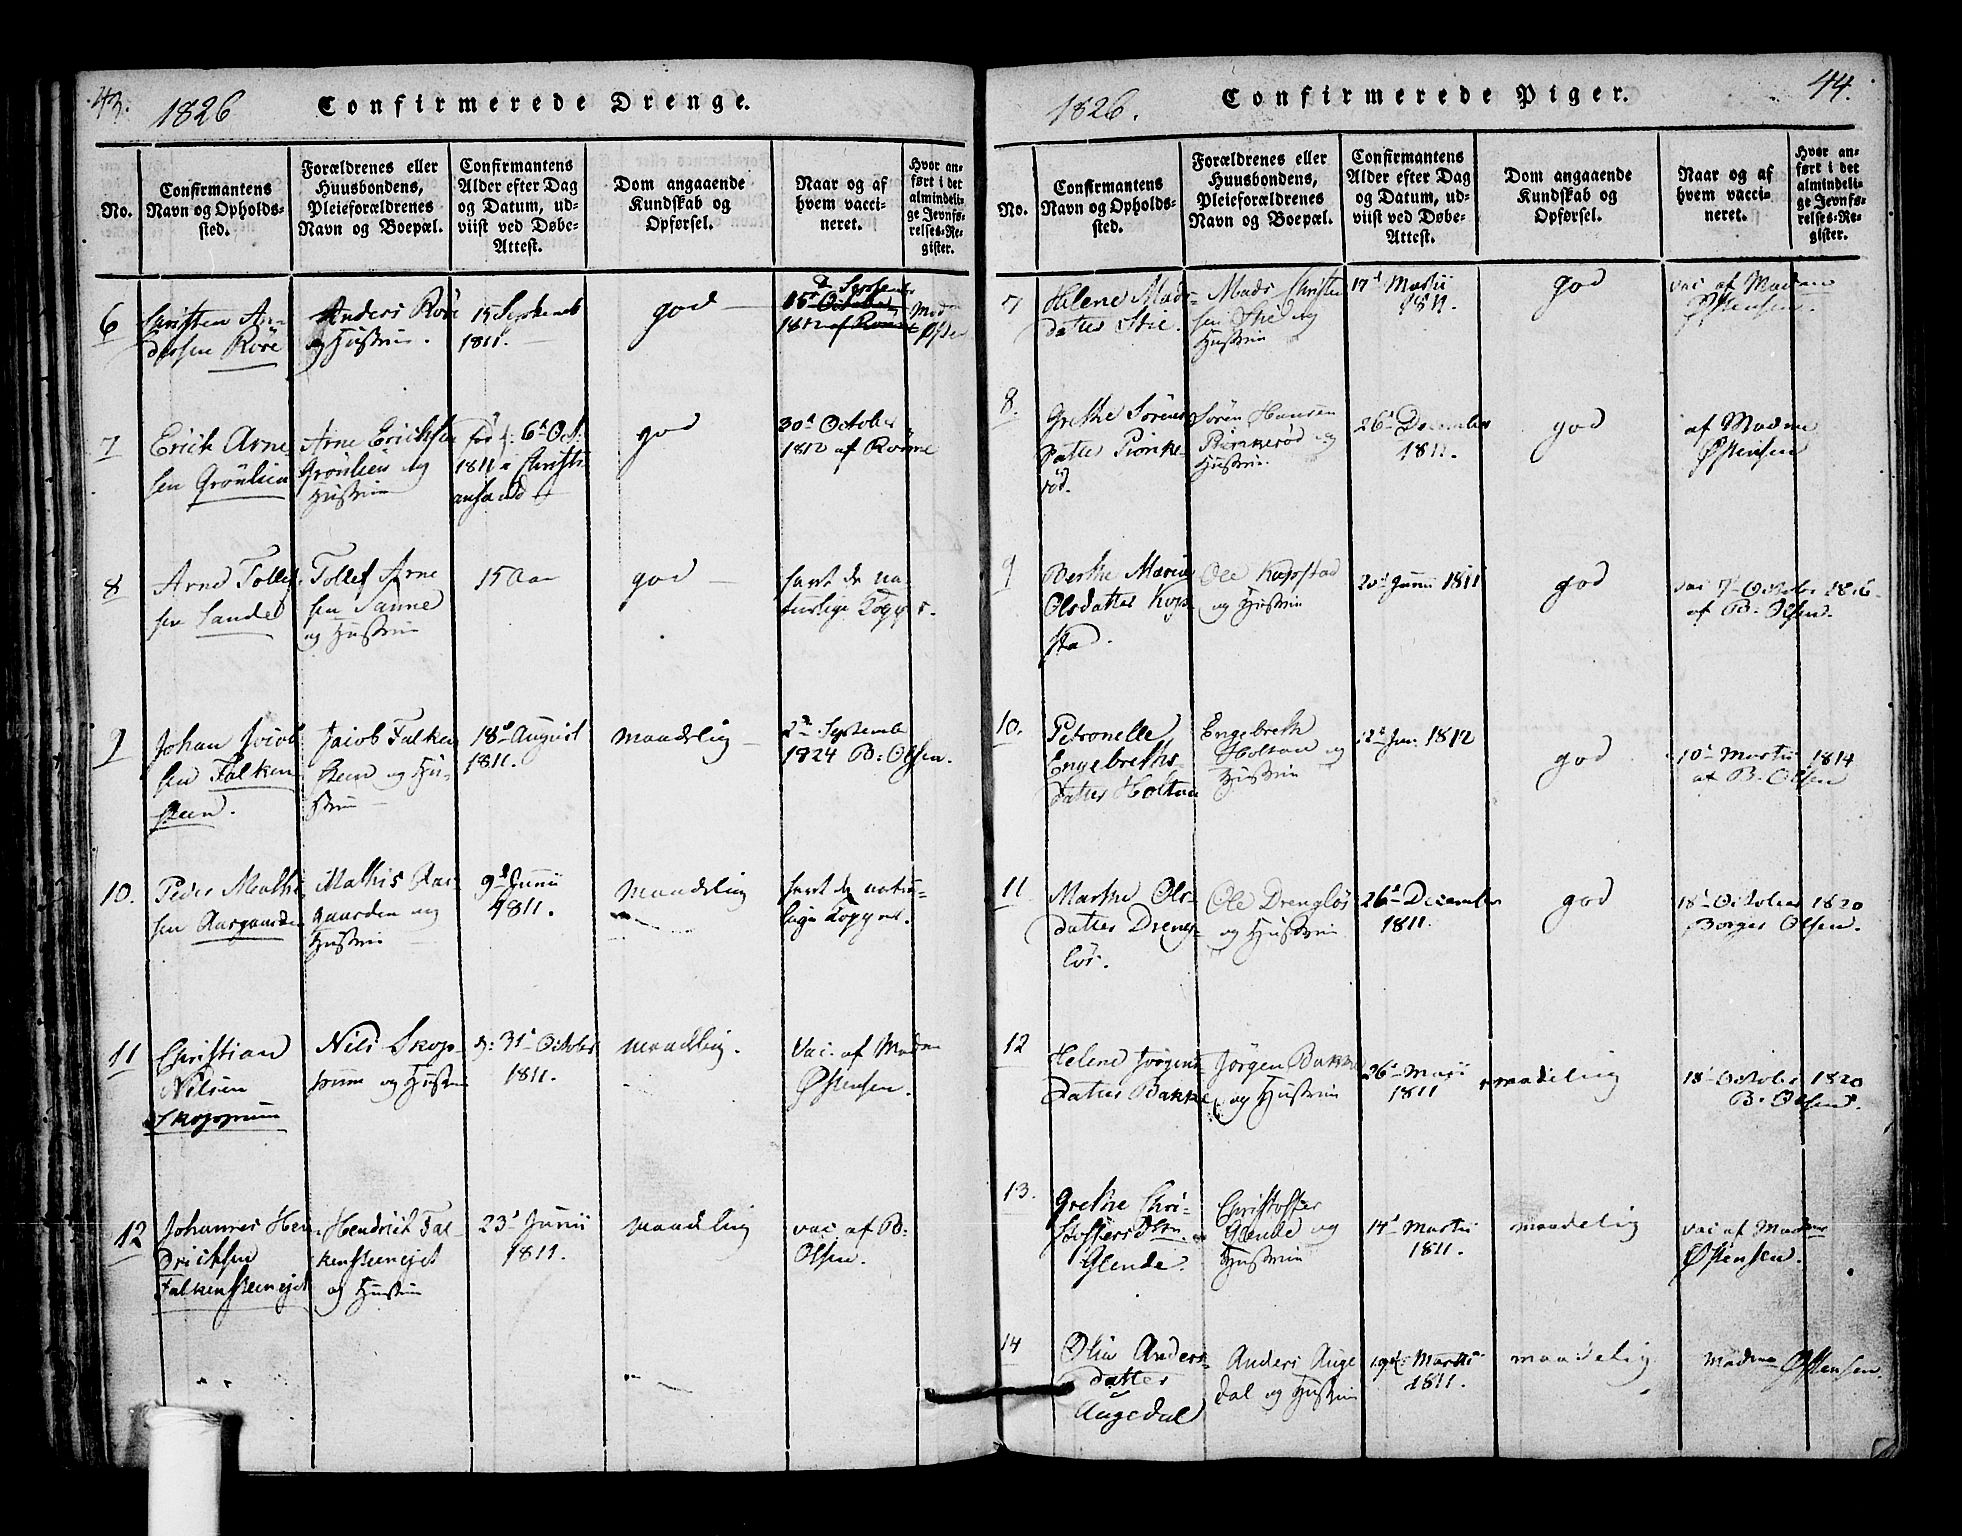 43.
1826 Confirmerede Drenge.
No.
Confirmantens
Navn og Opholds-
sted.
Forældrenes eller
Huusbondens,
Pleieforældrenes
Navn og Boepæl.
Confirmantens
Alder efter Dag
og Datum, ud-
viist ved Døbe-
Attest.
Dom angaaende
Kundskab og
Opførsel.
Naar og af
hvem vacci-
neret.
Hvor an-
ført i det
almindeli-
ge Jevnfø-
relses-Re-
gister.
6
Christen An
dersen Röre
Anders Röre
og Hustrue.
15 Septemb
1811.
god
1812 af
7
Erich Arne
sen Grönlien
Arne Erichsen
Grönlien og
Hustrue
6te Oct:
1811 i Christi
ansand
god
30d October
1812 af Rönne
8
Arne Tollef
sen Sande
Tollef Arne
sen Sanne
og Hustrue
15 Aar
god
havt de na
turlige Kopper.
9
Johan Jacob
sen Falken
steen.
Jacob Falken
steen og Hu-
strue
18d August
1811.
maadelig
2den Septemb
1824 B: Olsen.
10.
Peder Mathi
sen Aasgaarden
Mathis Aas-
gaarden og
Hustrue
9d Junii
1811.
maadelig
havt de natur-
lige Kopper.
11
Christian
Nilsen
Skoppum
Nils Skop-
pum og Hustrue
d: 31d October
1811.
maadelig.
Vac. af Madam
Østensen.
12
Johannes Hen
drichsen
Falkensteenejet
Hendrich Fal-
kensteenejet
og Hustrue
23d Junii
1811.
maadelig
vac. af B:
Olsen.
44.
1826. Confirmerede Piger.
No.
Confirmantens
Navn og Opholds-
sted.
Forældrenes eller
Huusbondens,
Pleieforældrenes
Navn og Boepæl.
Confirmantens
Alder efter Dag
og Datum, ud-
viist ved Døbe-
Attest.
Dom angaaende
Kundskab og
Opførsel.
Naar og af
hvem vacci-
neret.
Hvor an-
ført i det
almindeli-
ge Jevnfø-
relses-Re-
gister.
7
Helene Mads-
datter Stie.
Mads Christen
sen Stie og
Hustrue
17d Martii
1811.
god
vac af Madam
Østensen.
8.
Grethe Sörens
datter Pinke
röd.
Sören Hansen
Pinkeröd og
Hustrue.
26d December
1811.
god
af Madme
Østensen
9
Berthe Marie
Olsdatter Kop
stad.
Ole Kopstad
og Hustrue
20d Junii 1811
god
vac 7d October 1816
af B: Olsen.
10.
Petronelle
Engebreths-
datter Holtan
Engebreth
Holtan og
Hustrue
12d Jan: 1812
god
10d Martii 1814
af B: Olsen
11
Marthe Ols-
datter Dreng-
lös.
Ole Drenglös
og Hustrue
26d December
1811.
god
18d October 1820
Borger Olsen.
12
Helene Jörgens
datter Bakke
Jörgen Bakke
og Hustrue
26d Maji
1811
maadelig
18d October 1820
B: Olsen.
13.
Grethe Chri-
stoffersdtr.
Glende.
Christoffer
Glende og
Hustrue
14d Martii
1811.
maadelig
vac af Madme
Østensen.
14
Olia Anders-
datter
Augedal
Anders Auge
dal og Hustrue
19d Martii
1811.
maadelig
Madme Østensen.